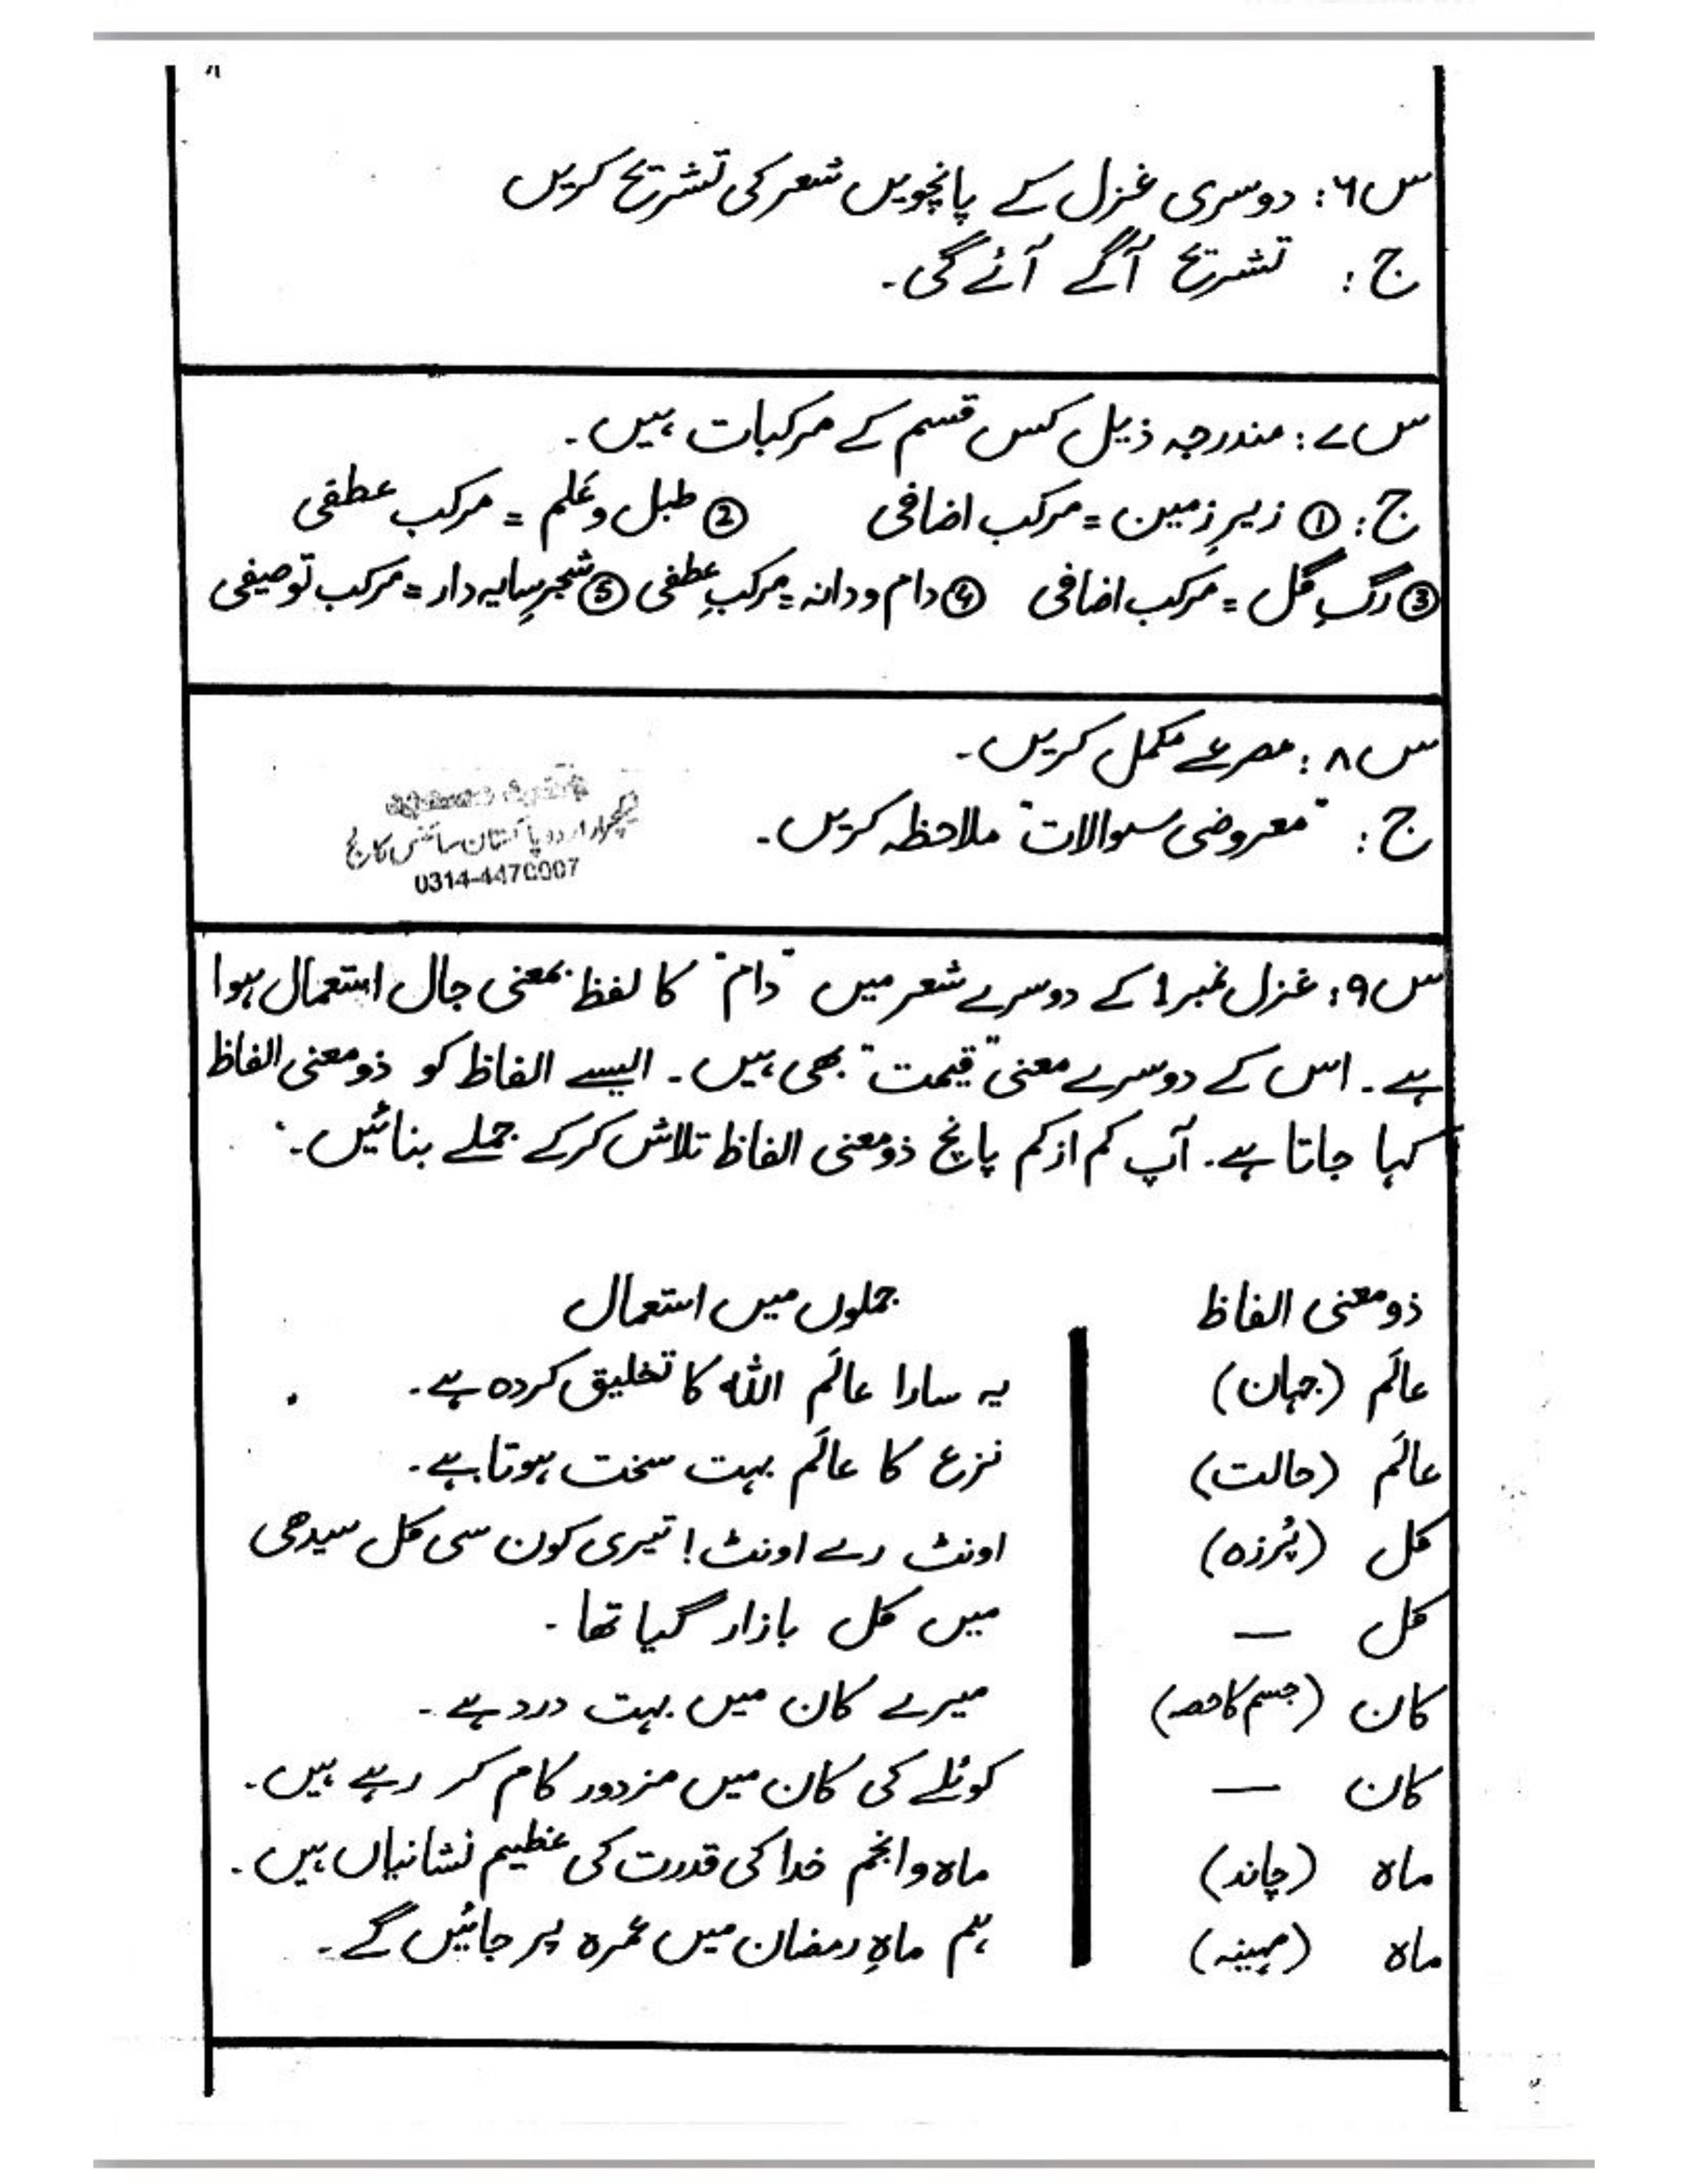 س۶: دوسری غزل کے پانچویں شعر کی تشریح کریں
ج: تشریح آگے آئے گی۔
س۷: مندرجہ ذیل کس قسم کے مرکبات ہیں۔
ج: ① زیرِ زمین = مرکب اضافی ② طبل و عَلم = مرکب عطفی
③ رگِ گل = مرکب اضافی ④ دام و دانہ = مرکبِ عطفی ⑤ شجرِ سایہ دار = مرکب توصیفی
س۸: مصرعے مکمل کریں۔
ج: "معروضی سوالات" ملاحظہ کریں۔
لیکچرار اردو پاکستان سائنس کالج
0314-4470007
س۹: غزل نمبر 1 کے دوسرے شعر میں "دام" کا لفظ بمعنی جال استعمال ہوا
ہے۔ اس کے دوسرے معنی "قیمت" بھی ہیں۔ ایسے الفاظ کو ذو معنی الفاظ
کہا جاتا ہے۔ آپ کم از کم پانچ ذومعنی الفاظ تلاش کر کے جملے بنائیں۔
ذو معنی الفاظ جملوں میں استعمال
عالَم (جہان) یہ سارا عالَم اللہ کا تخلیق کردہ ہے۔
عالَم (حالت) نزع کا عالَم بہت سخت ہوتا ہے۔
کل (پُرزہ) اونٹ رے اونٹ! تیری کون سی کل سیدھی
کل — میں کل بازار گیا تھا۔
کان (جسم کا حصہ) میرے کان میں بہت درد ہے۔
کان — کوئلے کی کان میں مزدور کام کر رہے ہیں۔
ماہ (چاند) ماہ و انجم خدا کی قدرت کی عظیم نشانیاں ہیں۔
ماہ (مہینہ) ہم ماہِ رمضان میں عمرہ پر جائیں گے۔